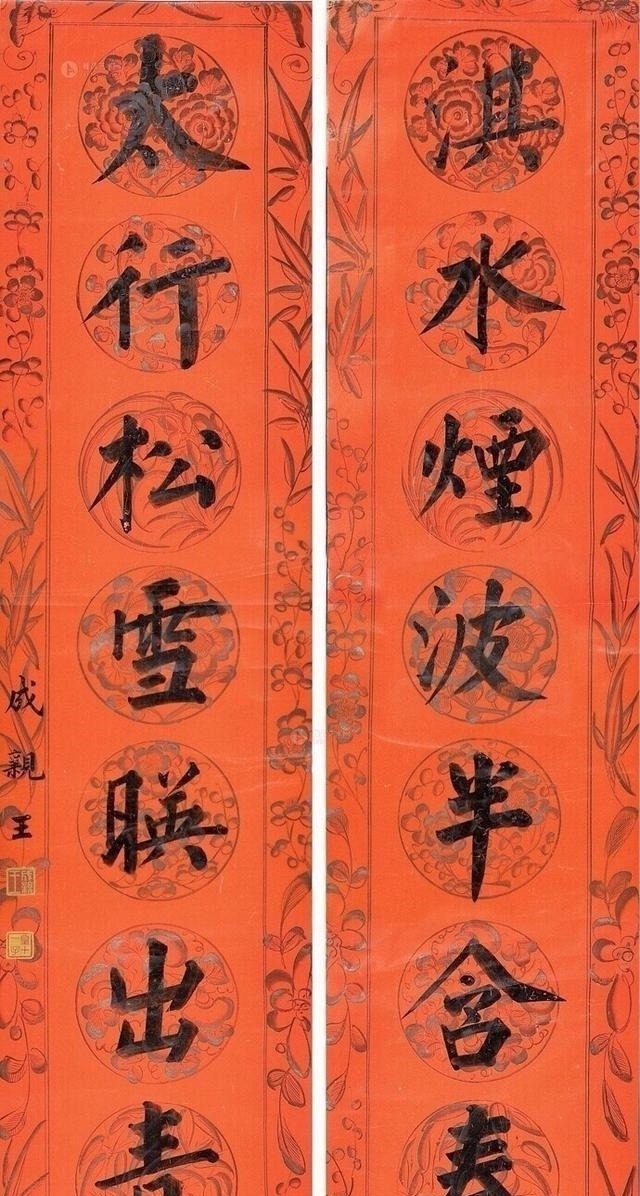 淇水煙波半含春
太行松雪暎出青
成親王